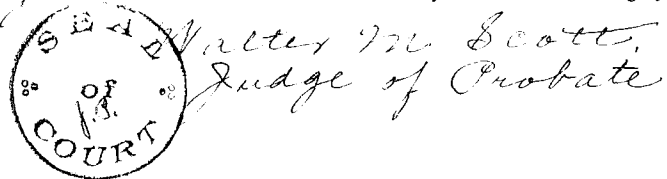 SEAL
of
COURT
Walter M Scott.
Judge of Probate